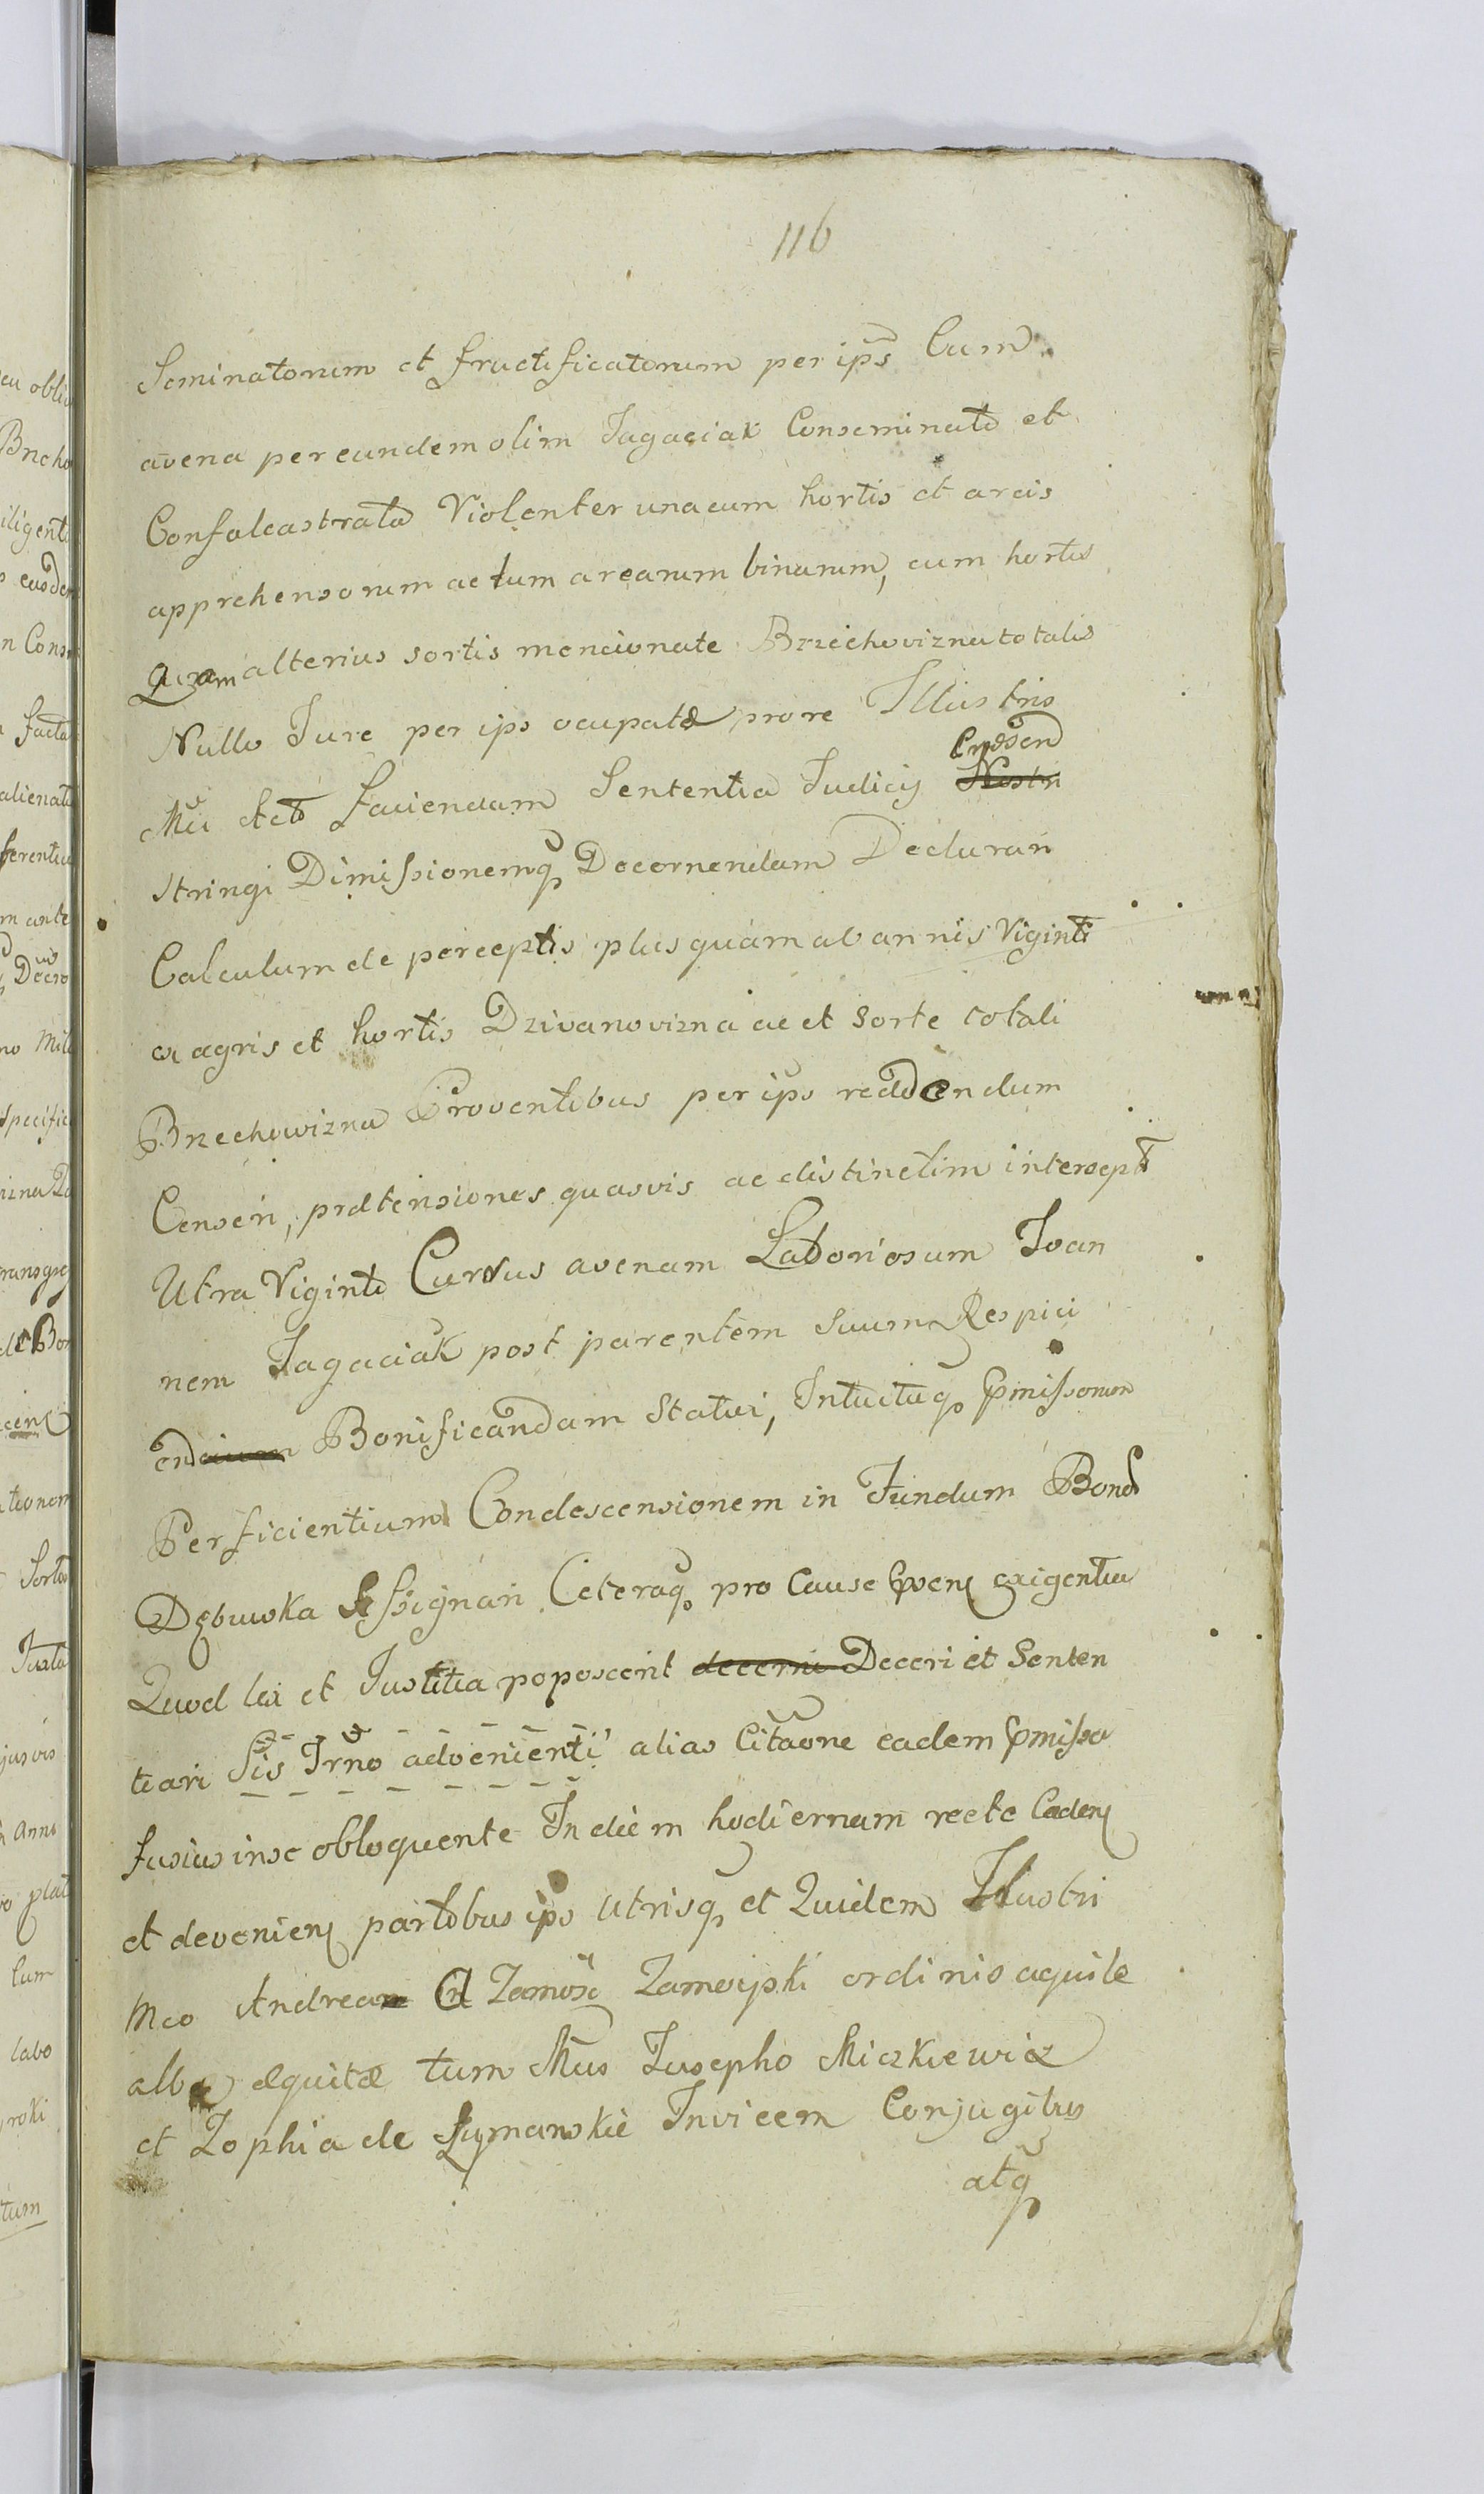 116
Seminatorum et fructificatorum per ips Cum
avena per eundem olim Jagaciak Conseminato et
Confalcastrato Violenter una cum hortis et areis
apprehensorum ac tum arearum binarum, cum hortis
Quam alterius sortis mencionate Brzechovizna totalis
Nullo Jure per ips ocupatæ pro re Illustris
Mci Act Faciendam Sententia Judicij Nostri Præsen
stringi Dimissionemq Decernendam Declarari
Calculum de perceptis plus quam ab annis Viginti
ex agris et hortis Dzivanovizna ac et Sorte totali
Brzechowizna Proventibus per ips reddendum
Censeri, prætensiones quasvis ac distinctim intersept
Utra Viginti Curus avenam Laboriosum Joan
nem Jagaciak post parentem Suum Respici
end Bonificandam Statui, Intuituq pmissorum
Perficientium Condescensionem in Fundum Bon
Dębuwka Assignari Ceteraq pro Cause psen exigentia
Quod lex et Justitia poposcerit decerni Deceri et Senten
tiari Sis Trno advenienti alias Citaone eadem pmissa
fusius in se obloquente In diem hodiernam recte Caden
et devenien partibus ips Utrisq et Quidem Illustri
Mco Andrea in Zamość Zamoyski ordinis aquile
albæ equitæ tum Mcis Josepho Miczkiewicz
et Zophia de Szymanskie Invicem Conjugibus
atq
eu oblig
Brzcho
iligent
eusdem
n Cons
facta
alienat
ferentia
m ante
Decro
no Mill
Specific
izna
transgre
de Bon
cen
tionem
Sortes
Juxta
jusvis
Anno
o plat
Cum
labo
roki
tum